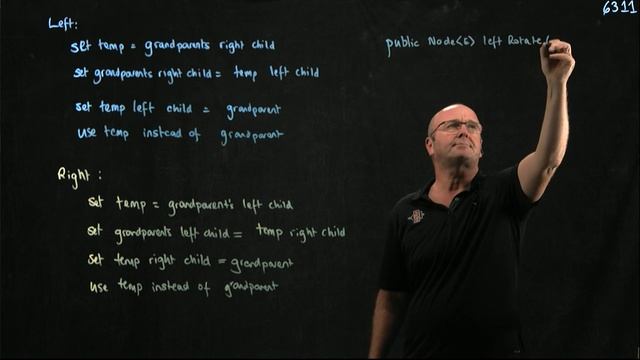 6311
Left:
set temp = grandparents right child
set grandparents right child = temp left child
set temp left child = grandparent
use temp instead of grandparent
Right:
set temp = grandparent's left child
set grandparents left child = temp right child
set temp right child = grandparent
use temp instead of grandparent
public Node<E> left Rotate(